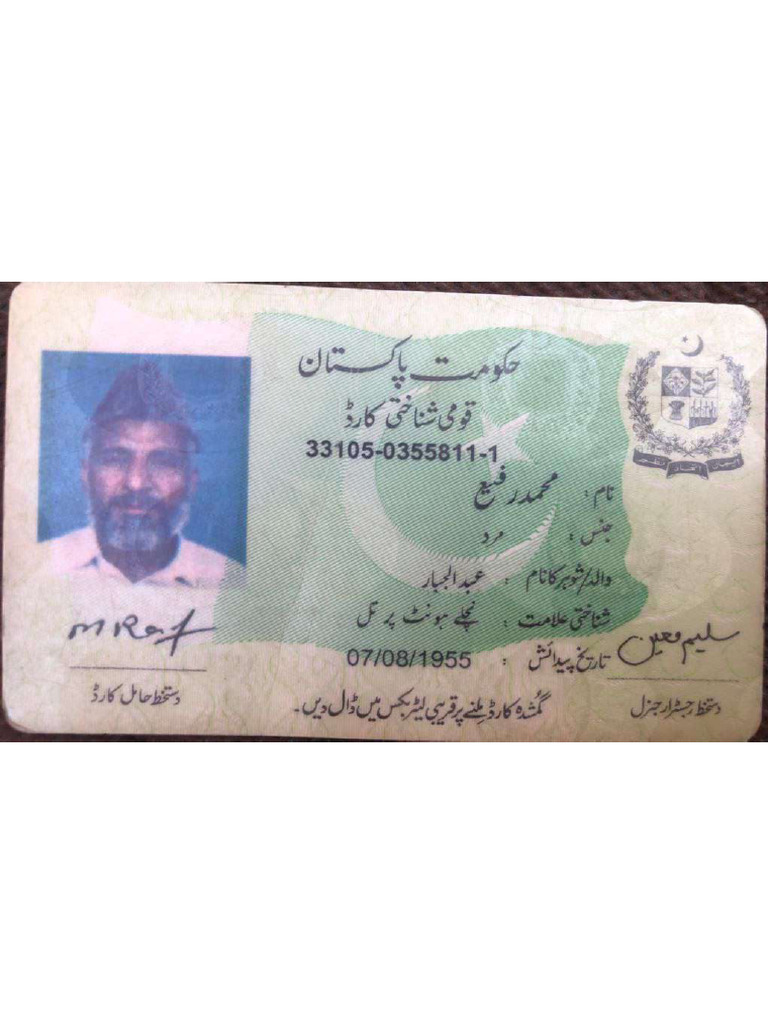 حکومت پاکستان
قومی شناختی کارڈ
33105-0355811-1
نام : محمد رفیع
جنس : مرد
والد/شوہر کا نام : عبدالجبار
شناختی علامت : نچلے ہونٹ پر تل
تاریخ پیدائش : 07/08/1955
سلیم معین
دستخط رجسٹرار جنرل
گمشدہ کارڈ ملنے پر قریبی لیٹر بکس میں ڈال دیں۔
M Raf
دستخط حامل کارڈ